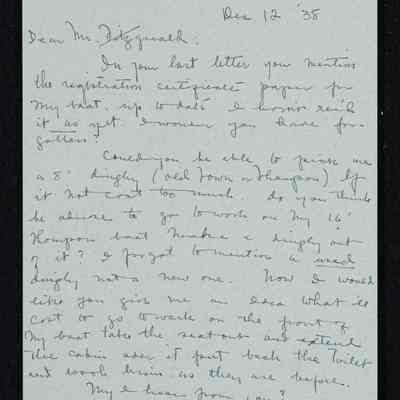 Dec 12 '38
Dear Mr. Fitzgerald.
In your last letter you mention
the registration certificate paper for
my boat. up to date I havn't rec'd
it as yet. I wonder you have for-
gotten?
Could you be able to me
a 8' dingby (Old Town or Thompson) if
it not cost too much. do you think
be advise to go to work on my 16'
Thompson boat make a dingby out
of it? I forgot to mention a used
dingby not a new one. Now I would
like you give me an idea what it'll
cost to go to work on the front of
my boat take the seat out and extend
the cabin also it put back the toilet
and wash as they are before.
May I hear from you?